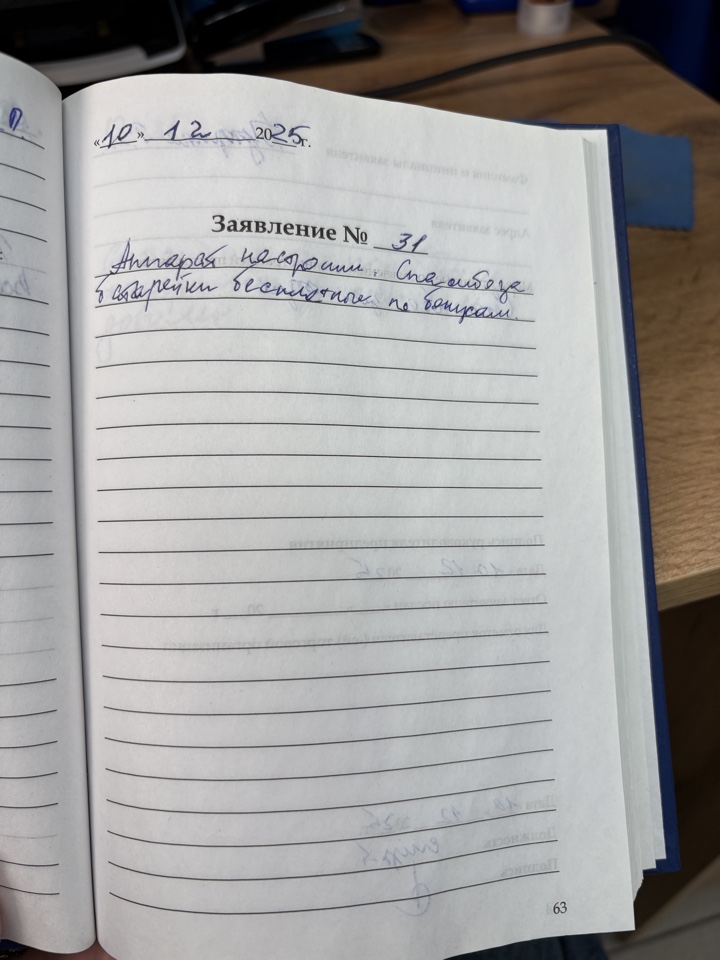 «10» 12 2025г.
Заявление № 31
Аппарат настроили. Спасибо за
батарейки бесплатные по бонусам.
63